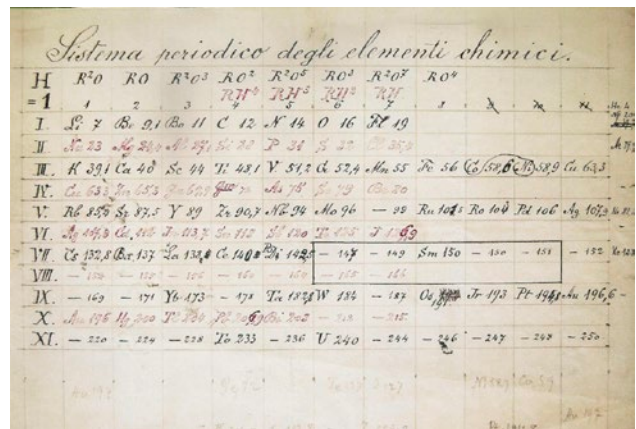 Sistema periodico degli elementi chimici.
H R²O RO R²O³ RO² R²O⁵ RO³ R²O⁷ RO⁴
RH⁴ RH³ RH² RH
=1 1 2 3 4 5 6 7 8
I. Li 7 Be 9,1 Bo 11 C 12 N 14 O 16 Fl 19
II. Na 23 Mg 24,4 Al 27, Si 28 P 31 S 32 Cl 35,4
III. K 39,1 Ca 40 Sc 44 Ti 48,1 V 51,2 Cr 52,4 Mn 55 Fe 56 Co 58,6 Ni 58,9 Cu 63,3
IV. Cu 63,3 Zn 65,3 Ga 69,9 As 75 Se 79 Br 80
V. Rb 85,5 Sr 87,5 Y 89 Zr 90,7 Nb 94 Mo 96 — 99 Ru 101,5 Ro 104 Pd 106 Ag 107,9
VI. Ag 107,9 Cd 112 In 113,7 Sn 118 Sb 120 Te 125 J 126,9
VII Cs 132,8 Ba 137 La 138, Ce 140, Di 142,5 — 147 — 149 Sm 150 — 150 — 151 — 152
VIII. — 165 — 166
IX. — 169 — 171 Yb 173 — 178 Ta 182,8 W 184 — 187 Os 191 Ir 193 Pt 194,8 Au 196,6
X. Au 196 Hg 200 Tl 204 Pb 206,9 Bi 208 — 212 — 215
XI. — 220 — 224 — 228 To 233 — 236 U 240 — 244 — 246 — 247 — 248 — 250